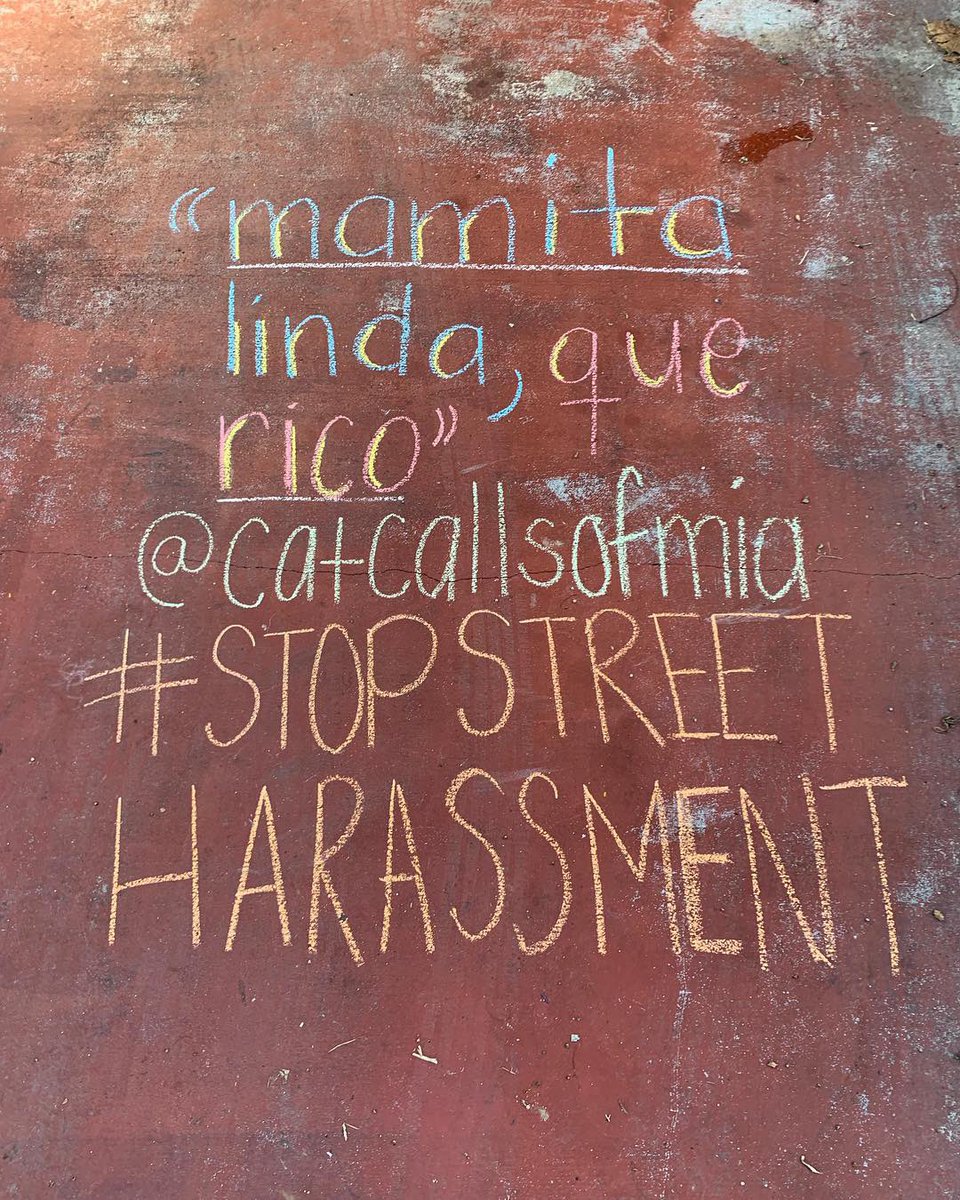 “mamita
linda, que
rico”
@catcallsofmia
#STOPSTREET
HARASSMENT